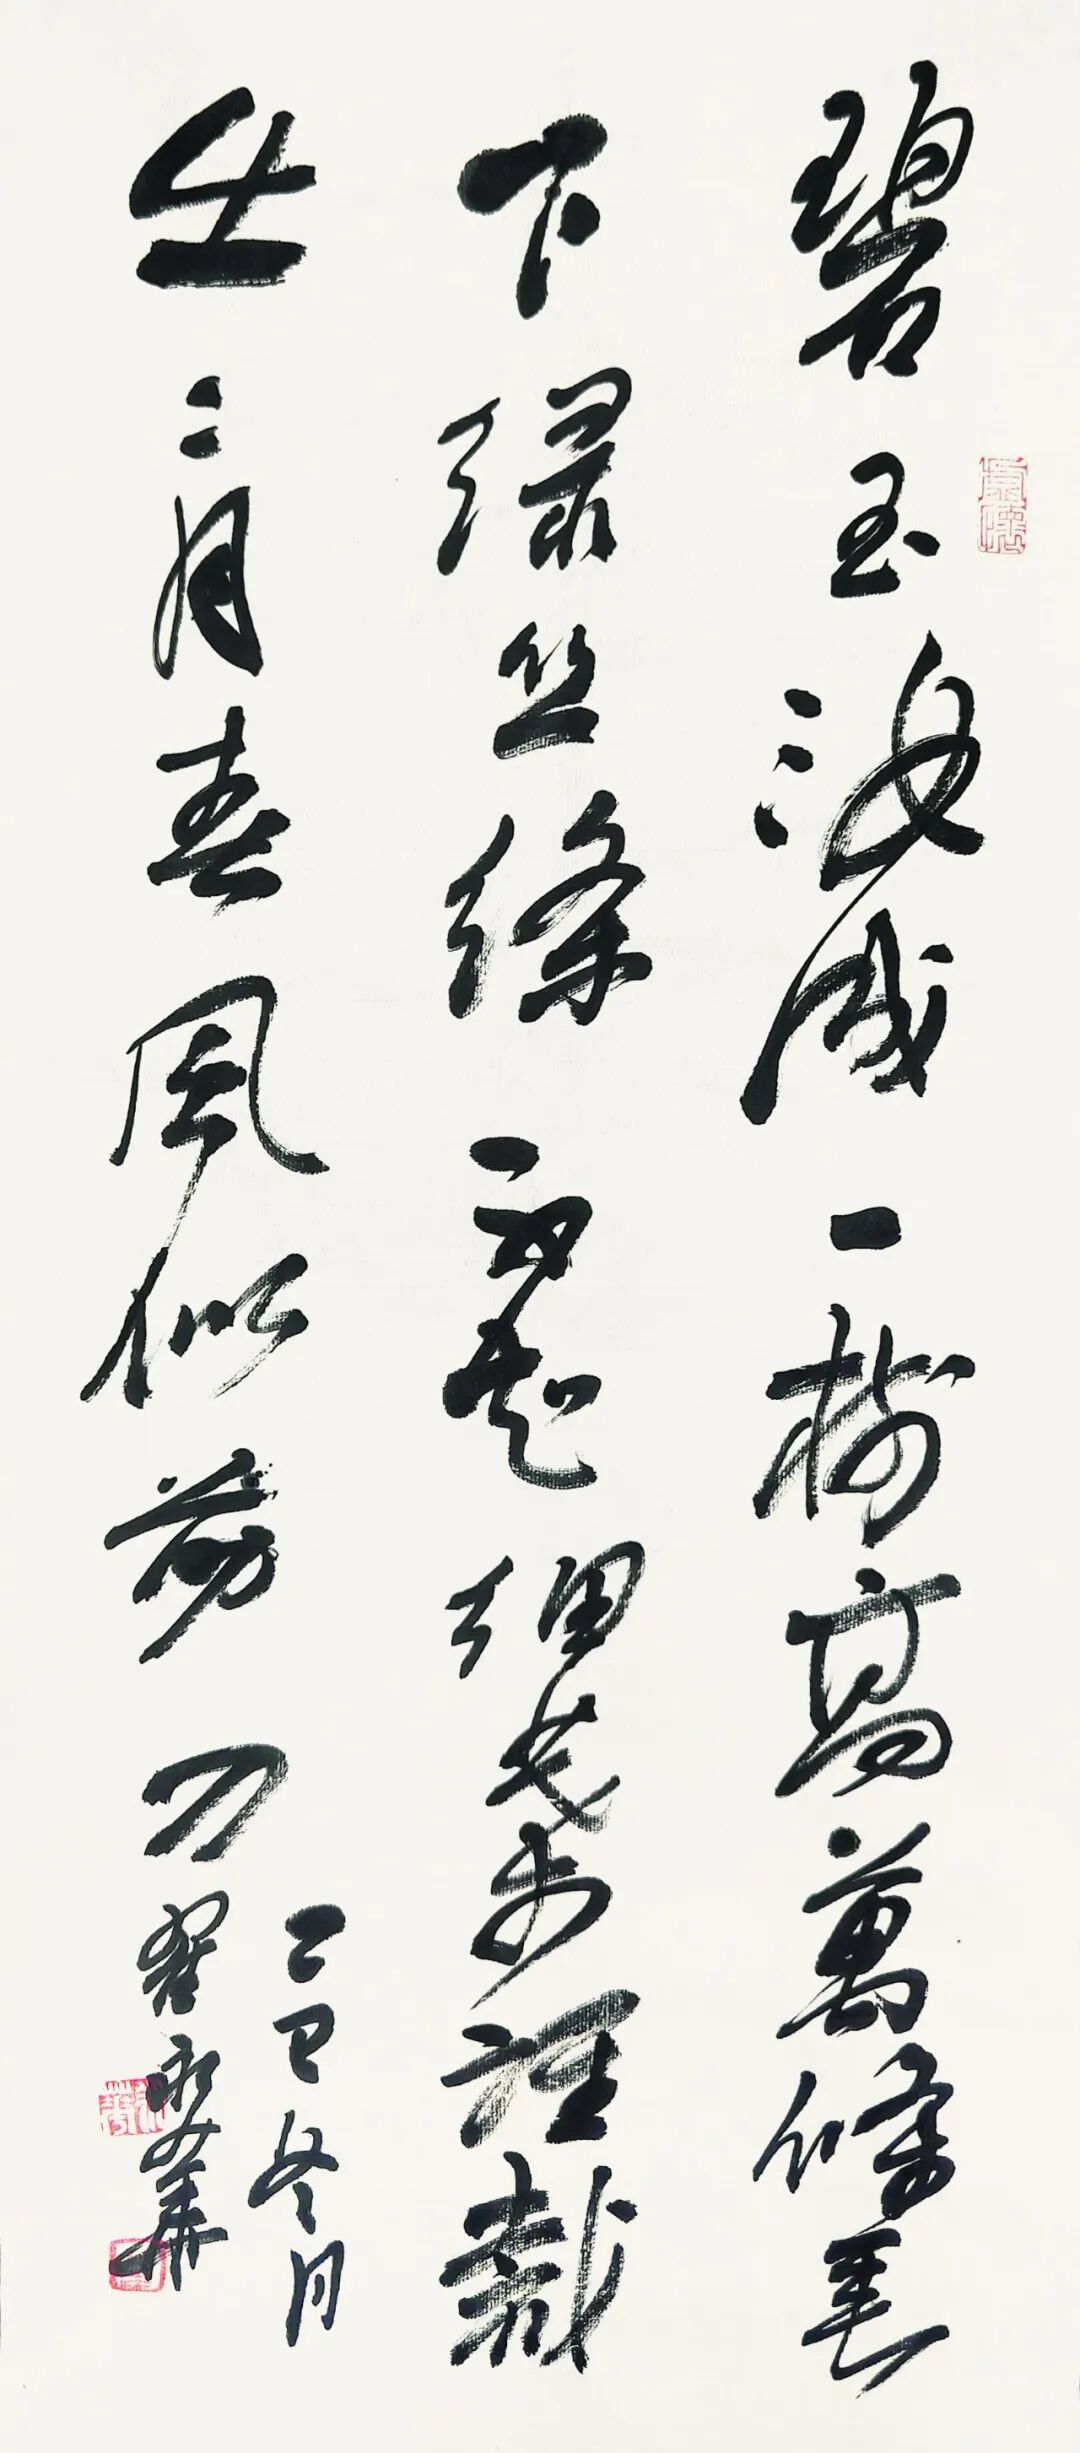 碧玉妝成一樹高萬條垂
下緑丝絛不知細葉誰裁
出二月春風似剪刀
乙巳冬月
永華